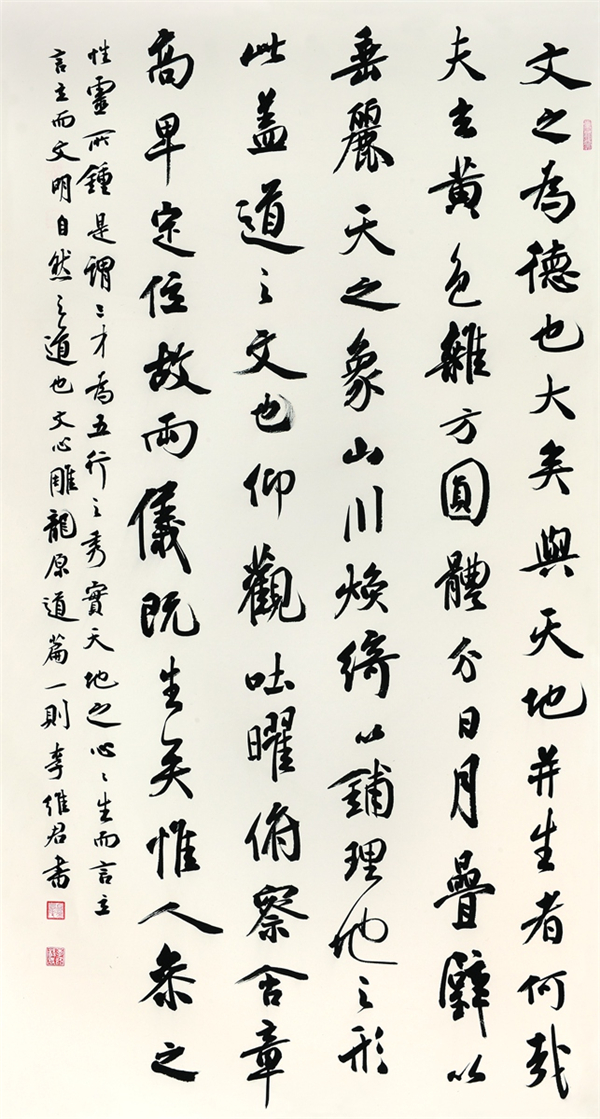 文之為德也大矣與天地并生者何哉
夫玄黃色雜方圓體分日月疊璧以
垂麗天之象山川煥綺以鋪理地之形
此蓋道之文也仰觀吐曜俯察含章
高卑定位故兩儀既生矣惟人參之
性靈所鍾是謂三才為五行之秀實天地之心〻生而言立
言立而文明自然之道也文心雕龍原道篇一則李維君書